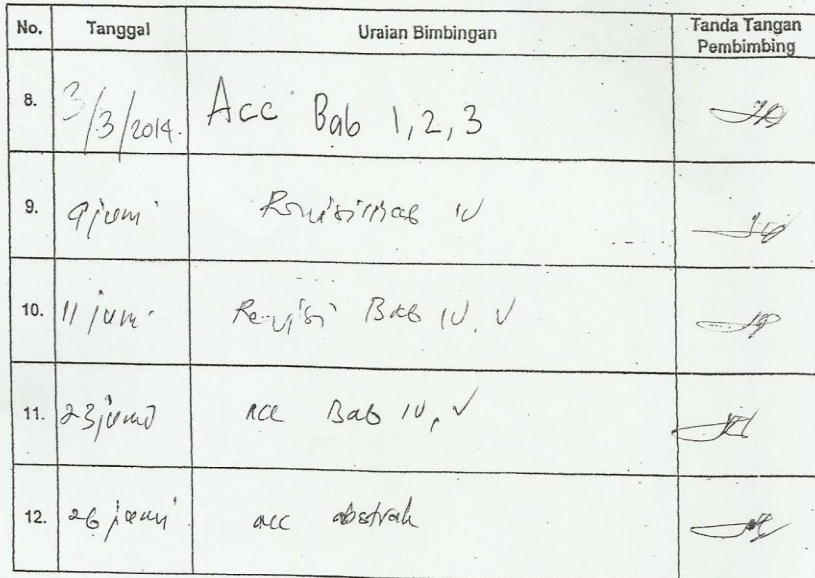 No. Tanggal Uraian Bimbingan Tanda Tangan Pembimbing
8. 3/3/2014. Acc Bab 1, 2, 3
9. 9 juni Revisi Bab IV
10. 11 juni Revisi Bab IV, V
11. 23 juni acc Bab IV, V
12. 26 juni acc abstrak